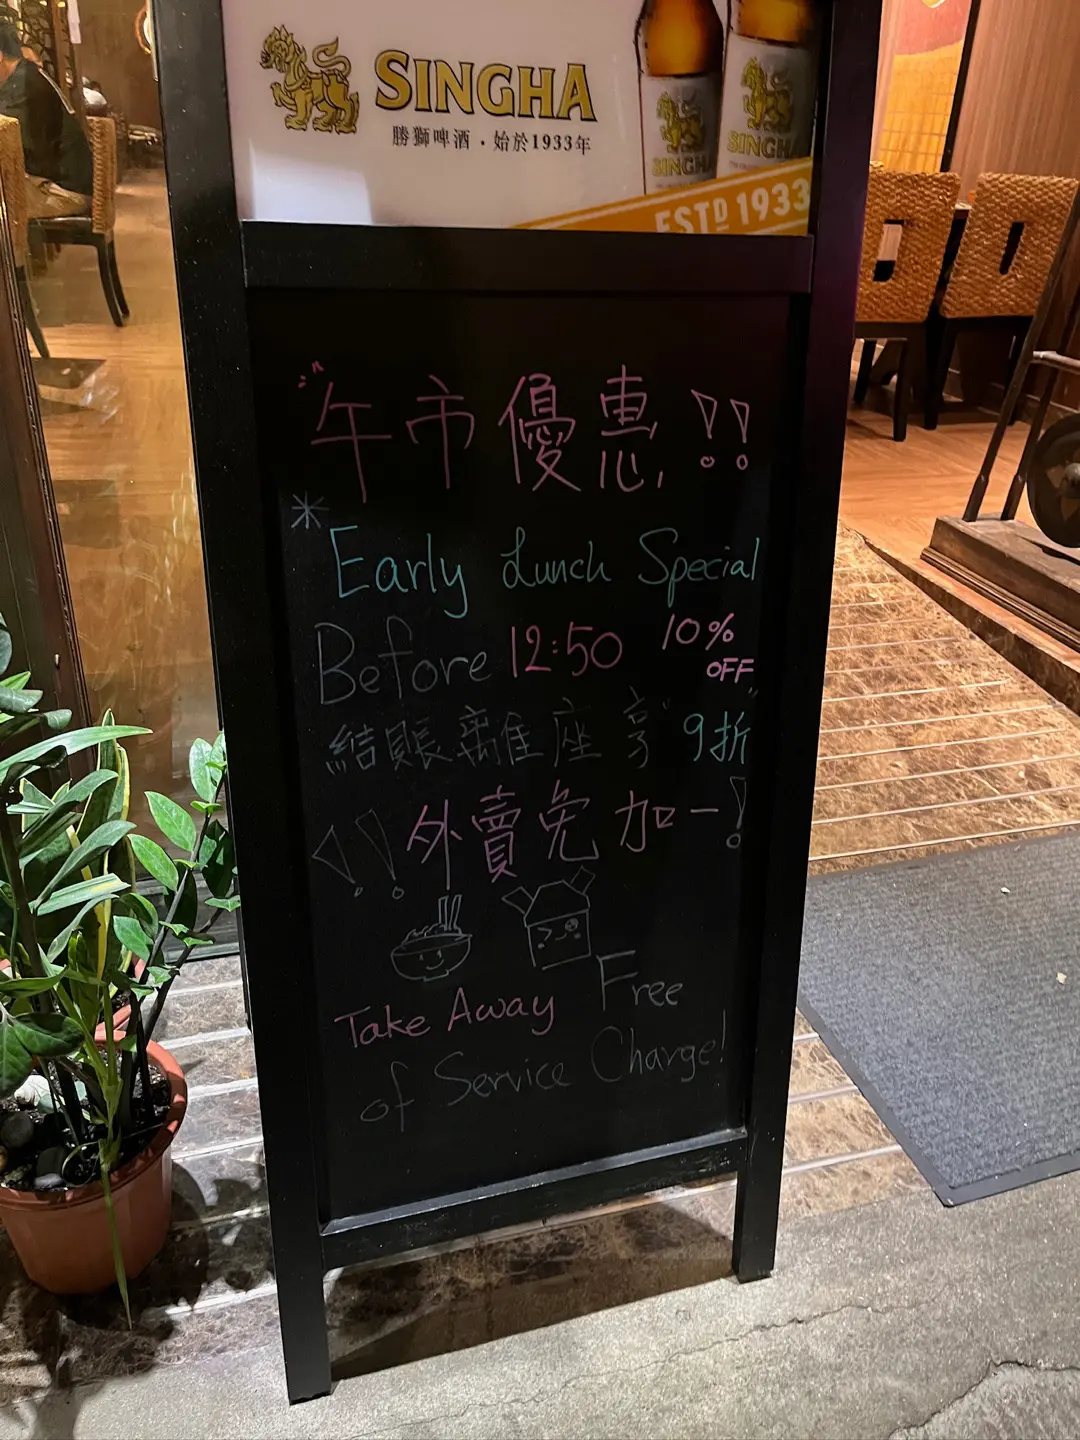 SINGHA
勝獅啤酒・始於1933年
SINGHA
SINGHA
ESTD 1933
午市優惠!!
*Early Lunch Special
Before 12:50 10% OFF
結賬離座享"9折"
!!外賣免加一!
Take Away Free
of Service Charge!